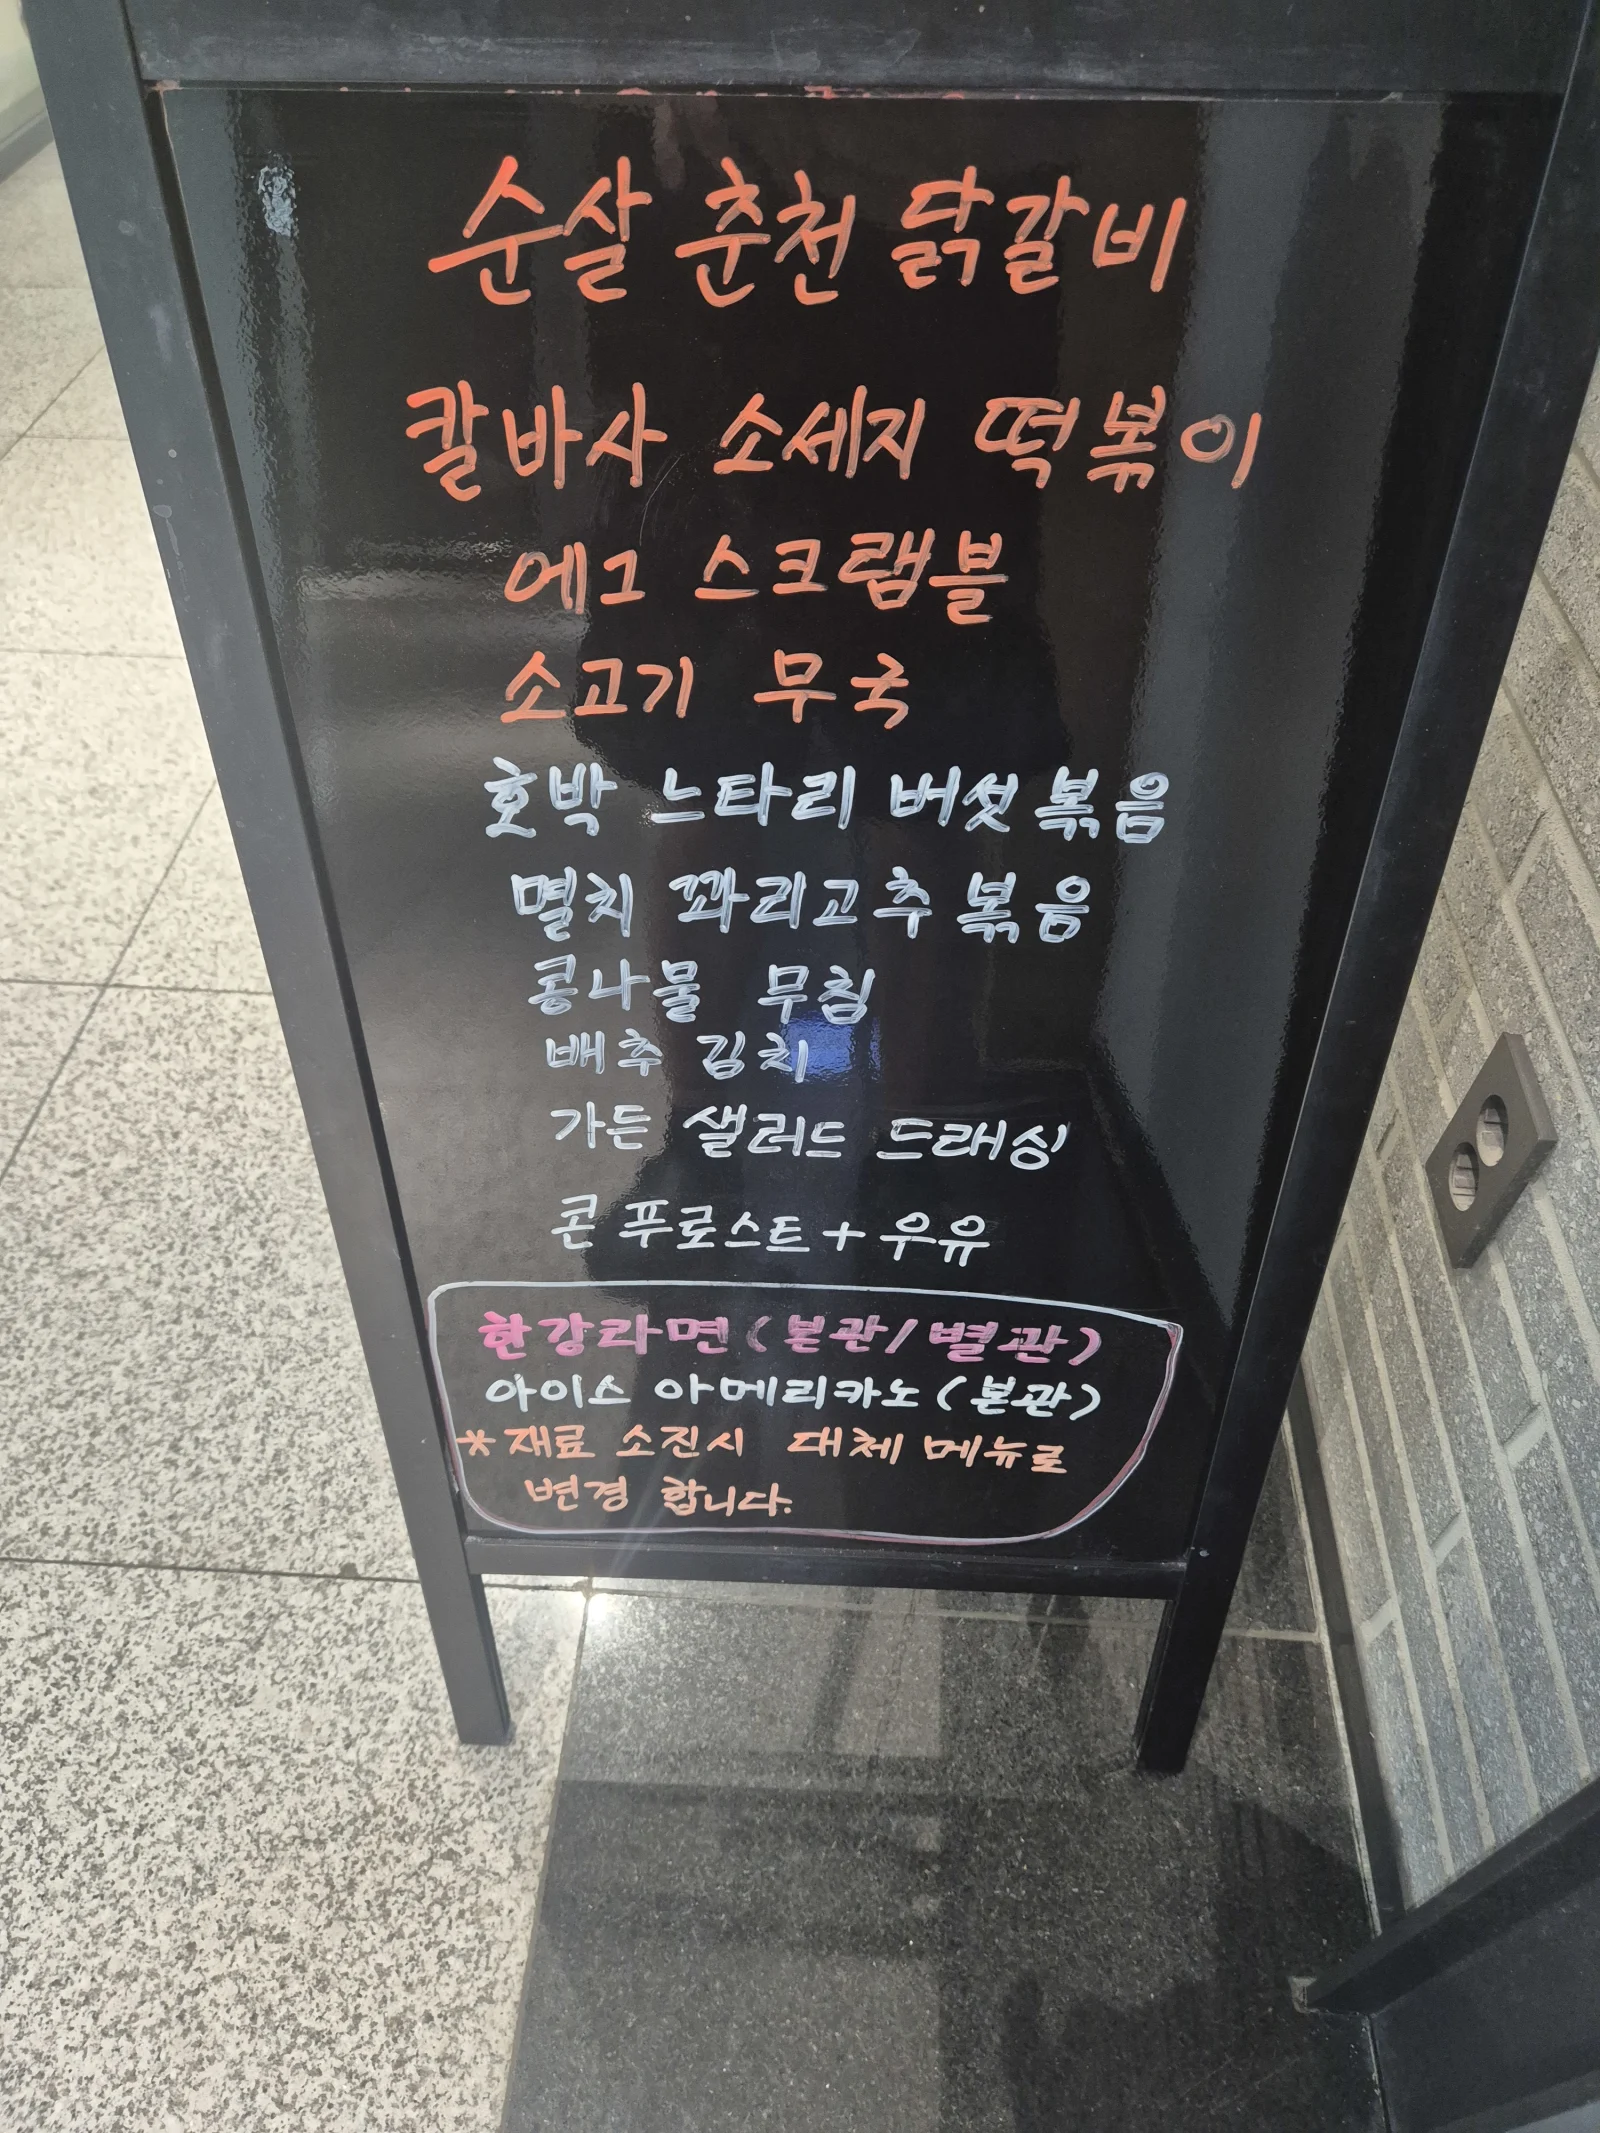 순살 춘천 닭갈비
칼바사 소세지 떡볶이
에그 스크램블
소고기 무국
호박 느타리 버섯 볶음
멸치 꽈리고추 볶음
콩나물 무침
배추 김치
가든 샐러드 드래싱
콘 푸로스트 + 우유
한강라면 (본관/별관)
아이스 아메리카노 (본관)
* 재료 소진시 대체 메뉴로
변경 합니다.